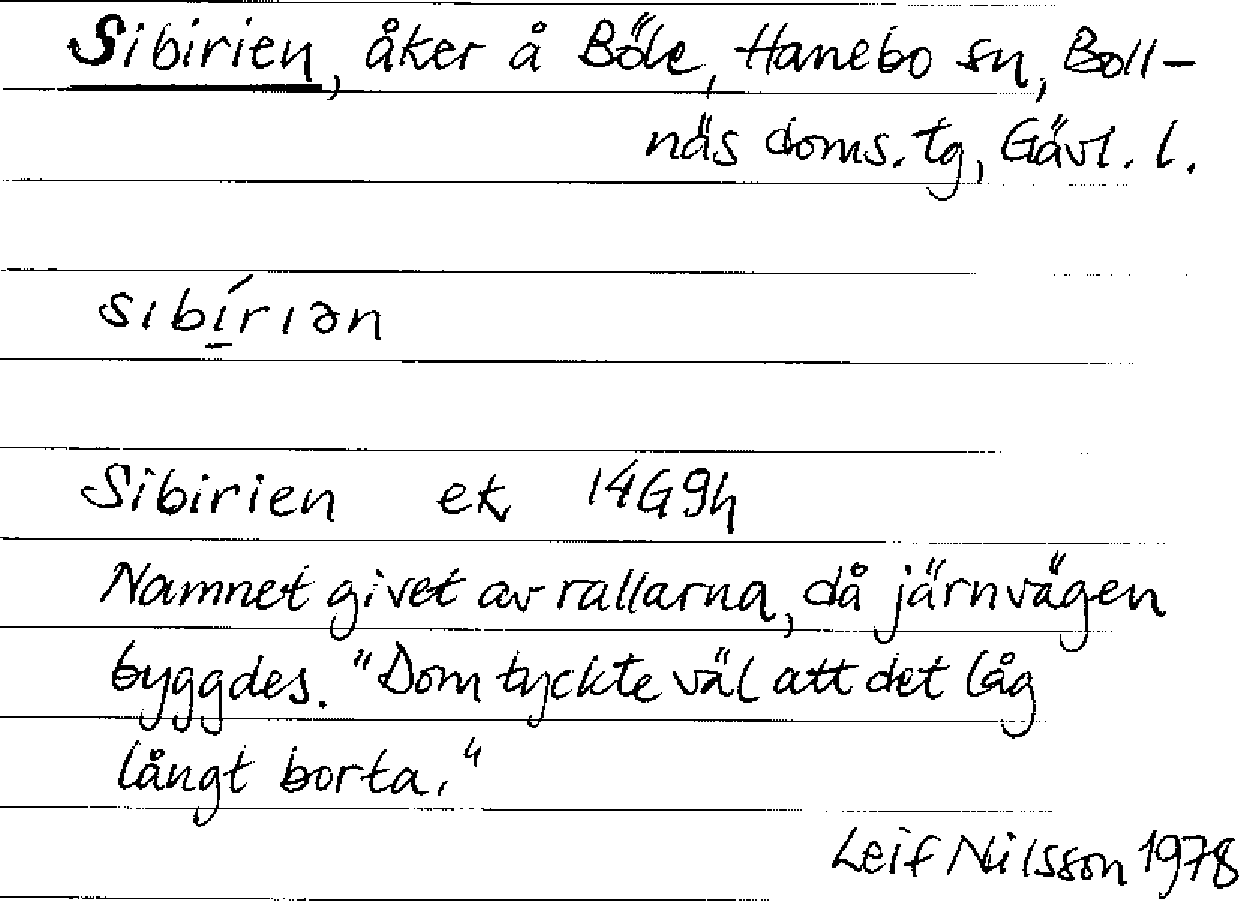 Sibirien, åker å Böle, Hanebo sn, Boll-
näs doms. tg, Gävl. l.
sıbí̱rıən
Sibirien ek 14G9h
Namnet givet av rallarna, då järnvägen
byggdes. "Dom tyckte väl att det låg
långt borta."
Leif Nilsson 1978